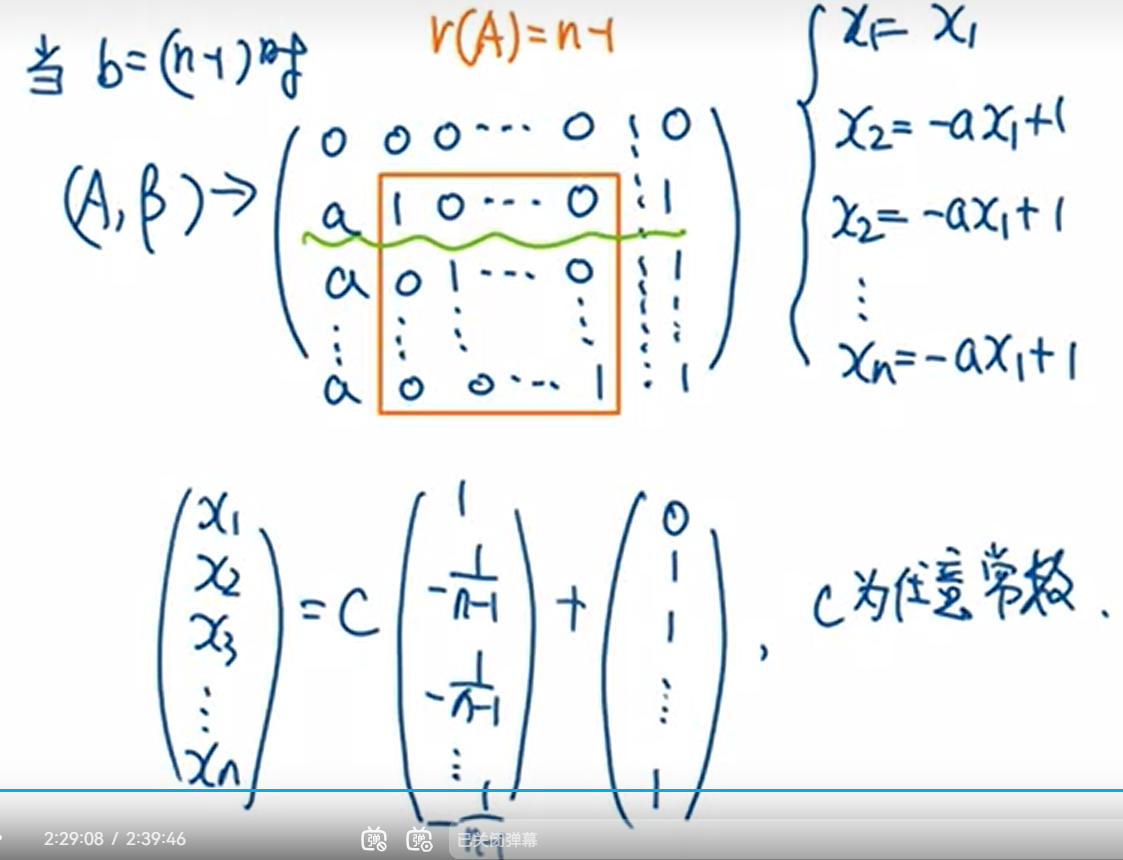 当 b=(n-1)时 r(A)=n-1
(A,β)→
0 0 0 ··· 0 ⋮ 0
a 1 0 ··· 0 ⋮ 1
a 0 1 ··· 0 ⋮ 1
⋮ ⋮ ⋮ ⋮ ⋮ ⋮
a 0 0 ··· 1 ⋮ 1
x₁= x₁
x₂= -ax₁+1
x₂= -ax₁+1
⋮
xₙ= -ax₁+1
(x₁ x₂ x₃ ⋮ xₙ) = C (1 -1/(n-1) -1/(n-1) ⋮ -1/(n-1)) + (0 1 1 ⋮ 1) , C为任意常数.
2:29:08 / 2:39:46 弹 弹 已关闭弹幕